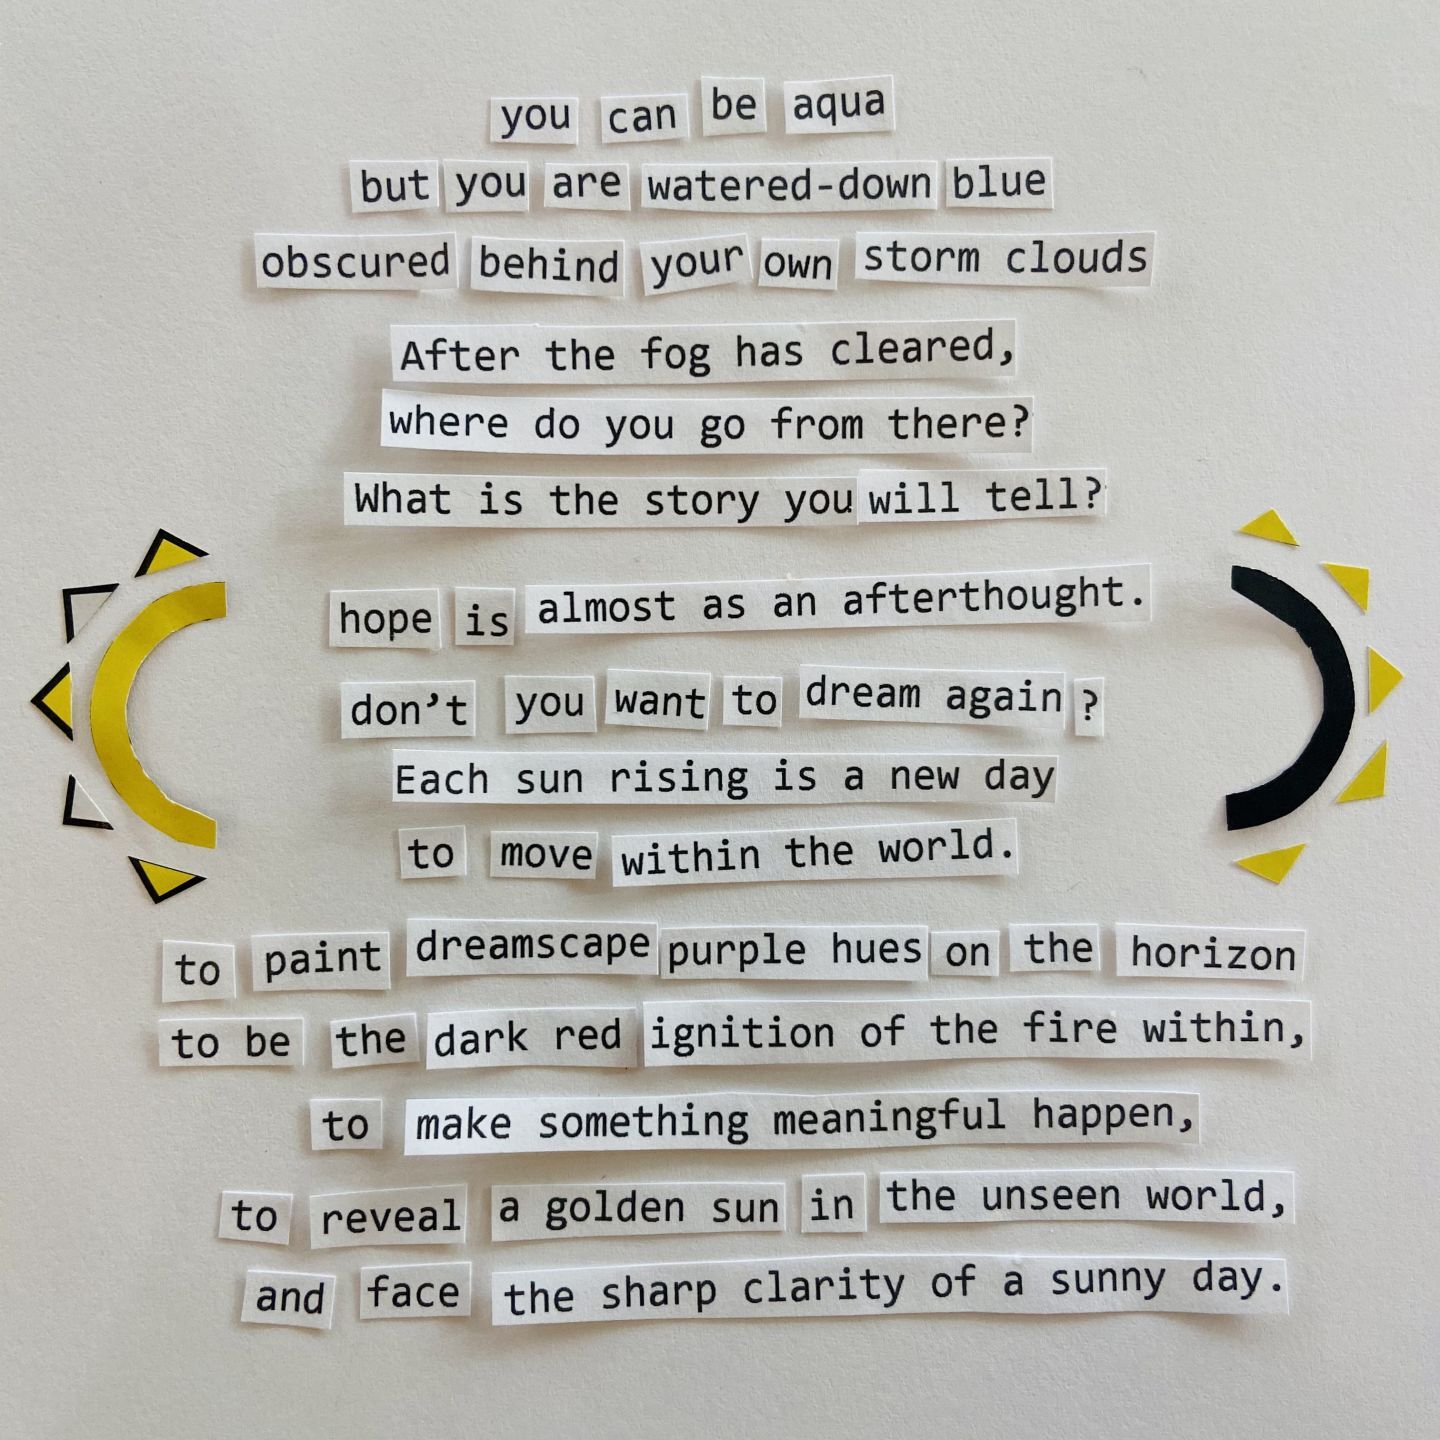 you can be aqua
but you are watered-down blue
obscured behind your own storm clouds
After the fog has cleared,
where do you go from there?
What is the story you will tell?
hope is almost as an afterthought.
don’t you want to dream again ?
Each sun rising is a new day
to move within the world.
to paint dreamscape purple hues on the horizon
to be the dark red ignition of the fire within,
to make something meaningful happen,
to reveal a golden sun in the unseen world,
and face the sharp clarity of a sunny day.